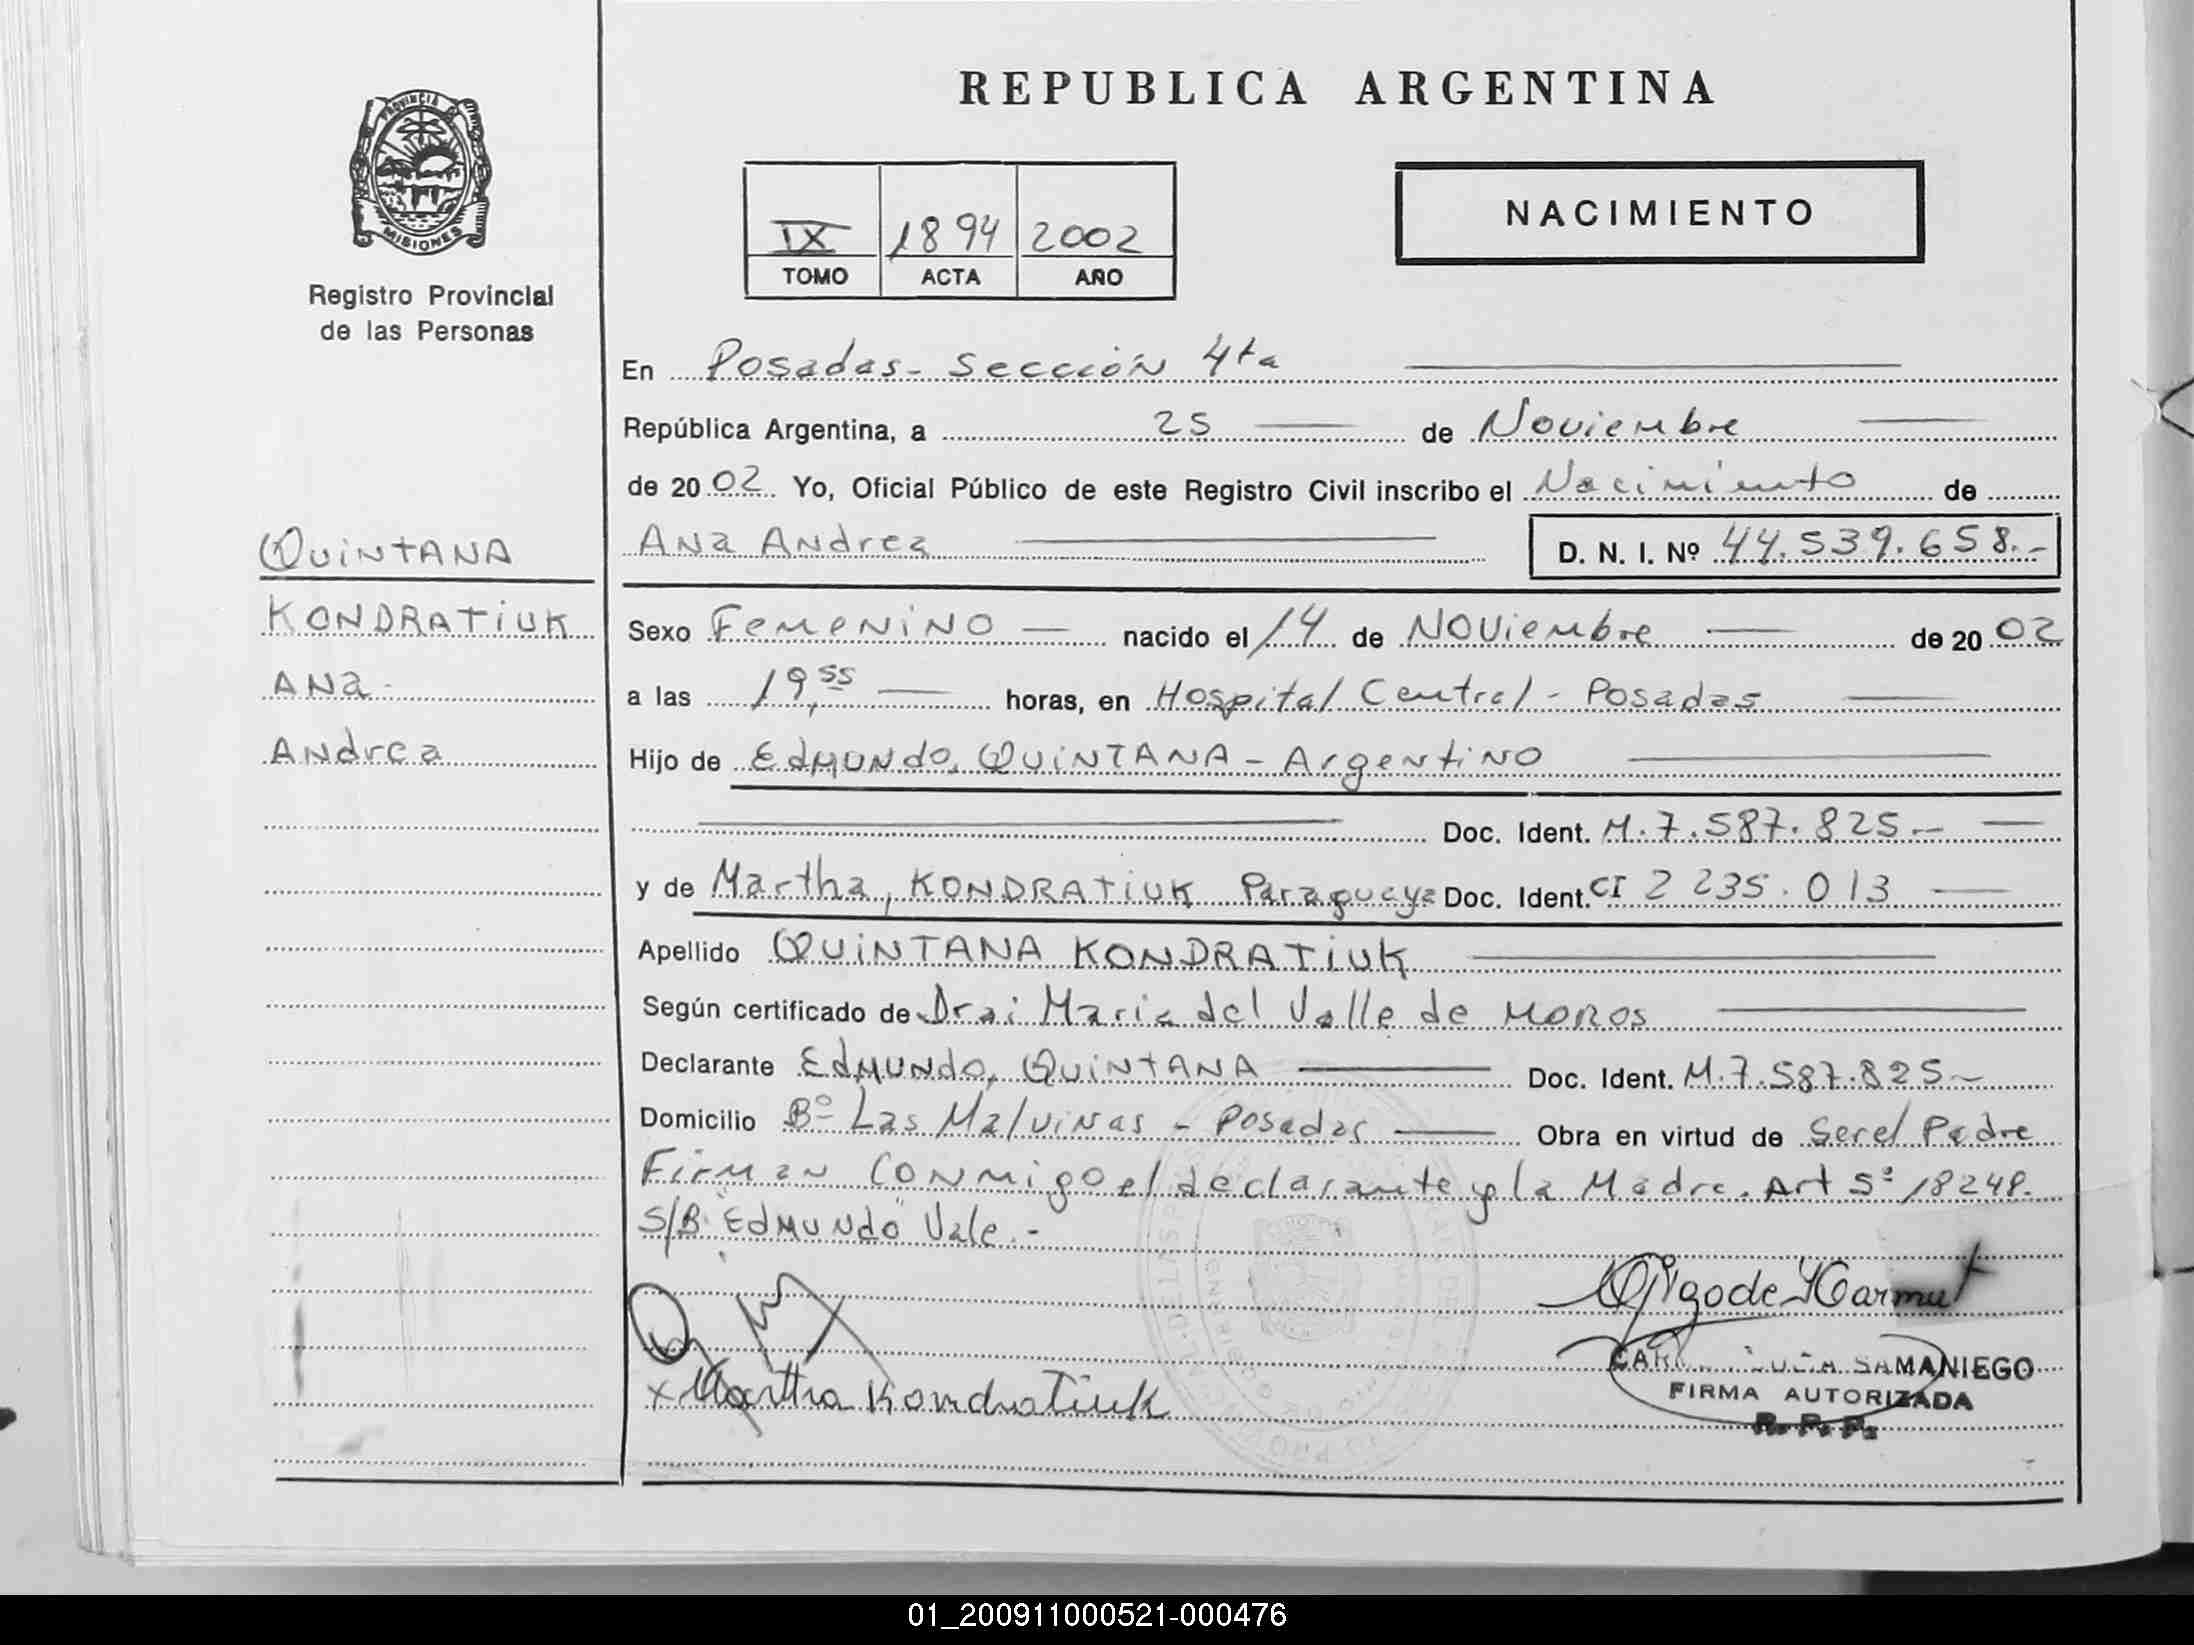 REPUBLICA ARGENTINA
PROVINCIA DE
MISIONES
Registro Provincial
de las Personas
IX 1894 2002
TOMO ACTA AÑO
NACIMIENTO
En Posadas - Sección 4ta
República Argentina, a 25 de Noviembre
de 2002 Yo, Oficial Público de este Registro Civil inscribo el Nacimiento de
Ana Andrea D. N. I. Nº 44.539.658.-
QUINTANA
KONDRATIUK
Ana
Andrea
Sexo Femenino nacido el 14 de Noviembre de 2002
a las 19,55 horas, en Hospital Central - Posadas
Hijo de Edmundo, QUINTANA - Argentino
Doc. Ident. M. 7.587.825.-
y de Martha, KONDRATIUK Paraguaya Doc. Ident. CI 2 235.013
Apellido QUINTANA KONDRATIUK
Según certificado de Dra: Maria del Valle de Moros
Declarante Edmundo, QUINTANA Doc. Ident. M. 7.587.825-
Domicilio Bº Las Malvinas - Posadas Obra en virtud de Ser el Padre
Firman conmigo el declarante y la Madre. Art 5º 18248.
S/B "Edmundo" Vale.-
x Martha Kondratiuk
SAMANIEGO
FIRMA AUTORIZADA
R. P. P.
01_200911000521-000476